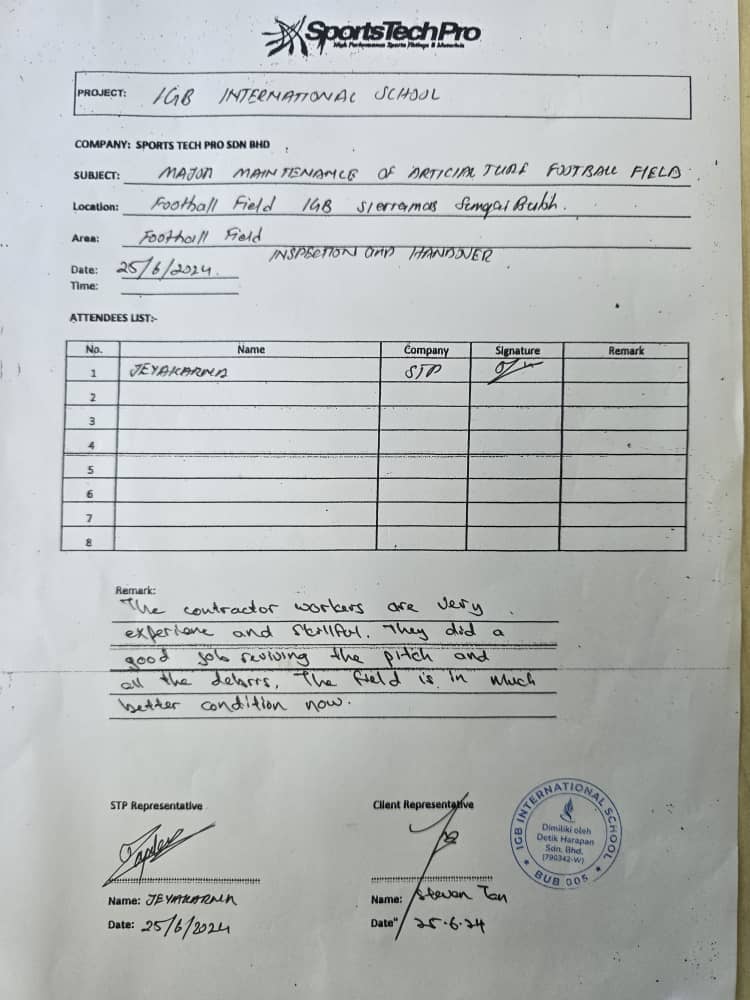 SportsTechPro
High Performance Sports Fittings & Materials
PROJECT: IGB INTERNATIONAL SCHOOL
COMPANY: SPORTS TECH PRO SDN BHD
SUBJECT: MAJOR MAINTENANCE OF ARTICIAL TURF FOOTBALL FIELD
Location: Football Field IGB Sierramas Sungai Buloh.
Area: Football Field
INSPECTION AND HANDOVER
Date: 25/6/2024.
Time:
ATTENDEES LIST:-
No. Name Company Signature Remark
1 JEYAKARNA STP
2
3
4
5
6
7
8
Remark:
The contractor workers are very
experiene and skillful. They did a
good job reviving the pitch and
all the debrrs. The field is in much
better condition now.
STP Representative Client Representative
Name: JEYAKARNA Name: Steven Tan
Date: 25/6/2024 Date" 25.6.24
IGB INTERNATIONAL SCHOOL
Dimiliki oleh
Detik Harapan
Sdn. Bhd.
(790342-W)
* BUB 005 *